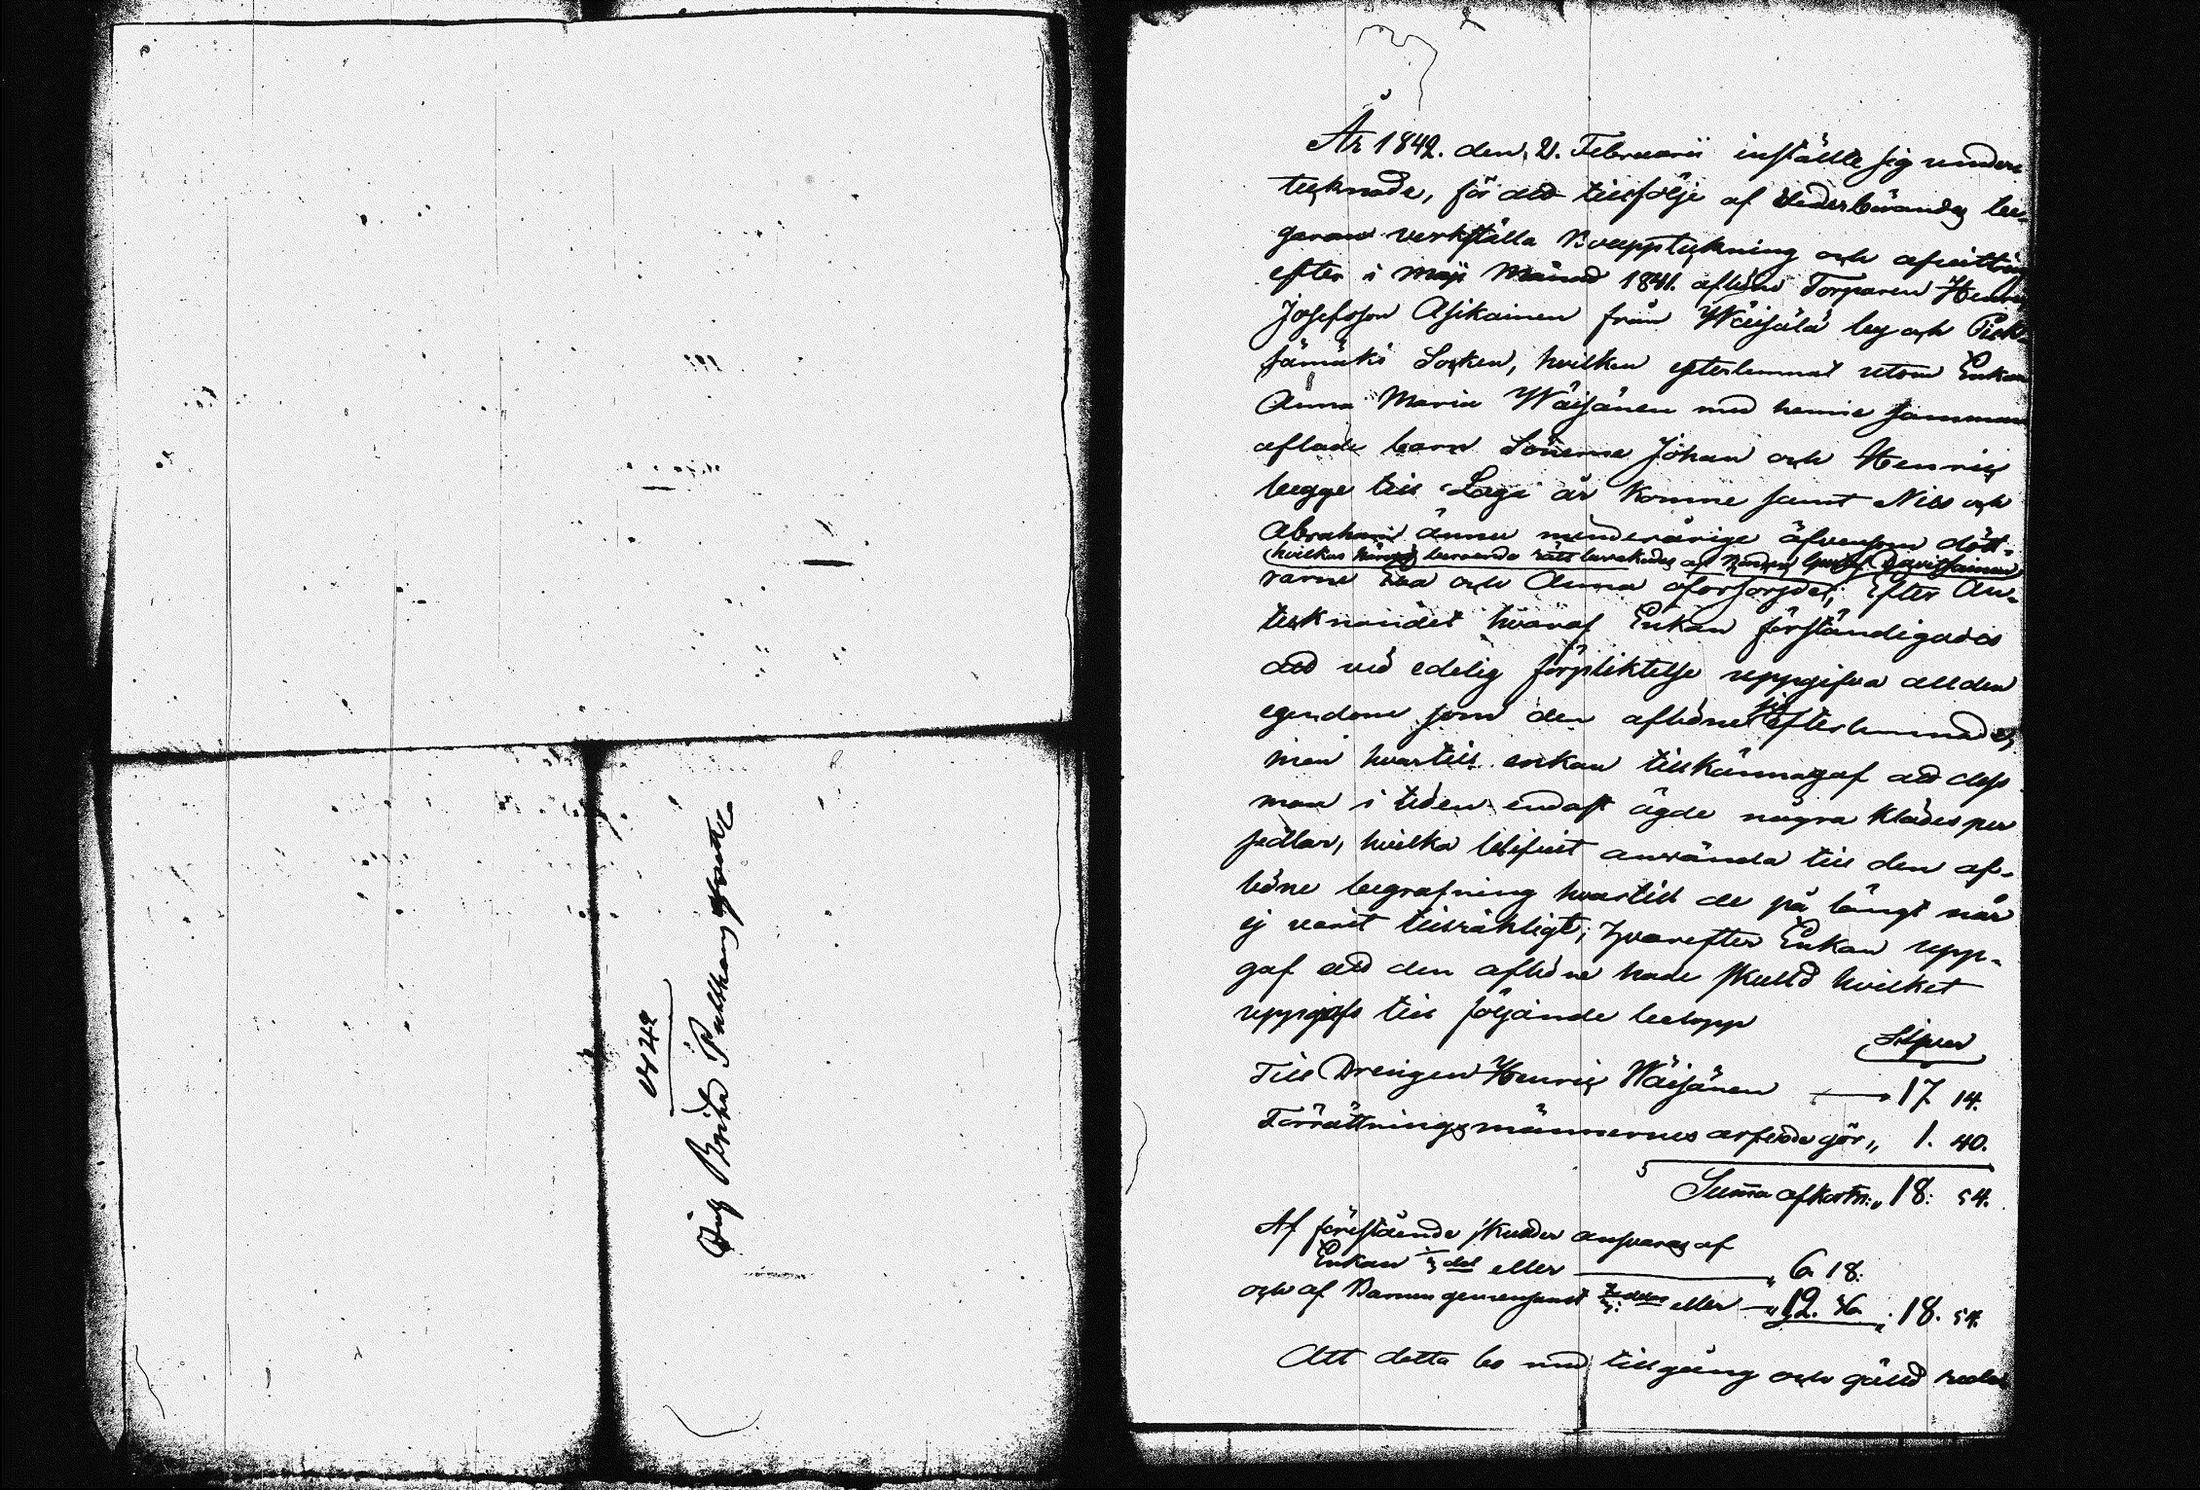 1842
Brita Pulkkan
År 1842. den 2. Februarii inställte sig under
tecknade, för att till följe af vederbörandes be-
gäran verkställa Bouppteckning och afvittring
efter i Maji Månad 1841. aflidne Torparen Henric
Josefsson Asikainen från Wäisälä by och Piek-
sämäki Socken, hvilken efterlemnat utom Enkan
Anna Maria Wäisänen med henne samman
aflade barn Sönerne Johan och Henric
begge till Laga år komne samt Nils och
Abraham ännu minderårige äfvensom dött-
hvilkas beroende rätt bevakades af Davitsainen
rarne Eva och Anna oförsörgde; Efter An-
tecknandet hvaraf Enkan förständigades
att vid edelig förpliktelse uppgifva all den
egendom som den aflidne sig efterlemnade,
men hvartill enkan tillkännagaf att dess
man i tiden endast ägde några klädes per
sedlar, hvilka blifvit använda till den af-
lidne begrafning hvartill de på långt när
ej varit tillräkligt; Hvarefter Enkan upp-
gaf att den aflidne hade skuld hvilket
uppgifs till följande belopp
Silfver
Till Drengen Henric Wäisänen — 17 14.
Förrättningsmännernes arfvode gör „ 1. 40.
Summa afkortn: „ 18: 54.
Af förestående skulder ansvaras af
Enkan 1/3 del eller — „ 6 18:
och af Barnen gemensamt 2/3 delar eller — „ 12. 36. . 18. 54.
Att detta bo med tillgång och gäld redo